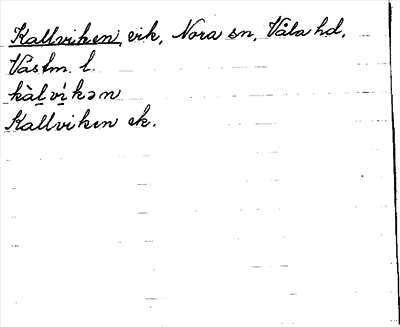 Kallviken, vik, Nora sn, Våla hd,
Västm. l.
kàl vi̇̀kən
Kallviken ek.